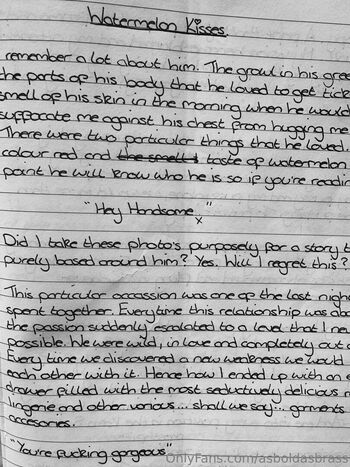 Watermelon Kisses.
remember a lot about him. The growl in his gree
the parts of his body that he loved to get tick
smell of his skin in the morning when he would
suffocate me against his chest from hugging me
There were two particular things that he loved.
colour red and the smell t taste of watermelon
point he will know who he is so if you're readin
"Hey Handsome x"
Did I take these photo's purposely for a story t
purely based around him? Yes. Will I regret this?
This particular occassion was one of the last nigh
spent together. Everytime this relationship was abo
the passion suddenly escalated to a level that I ne
possible. We were wild, in love and completely out o
Every time we discovered a new weakness we would
each other with it. Hence how I ended up with an e
drawer filled with the most seductively delicious r
lingerie and other various... shall we say... garments
accesories.
"You're fucking gorgeous"
OnlyFans.com/asboldasbrass